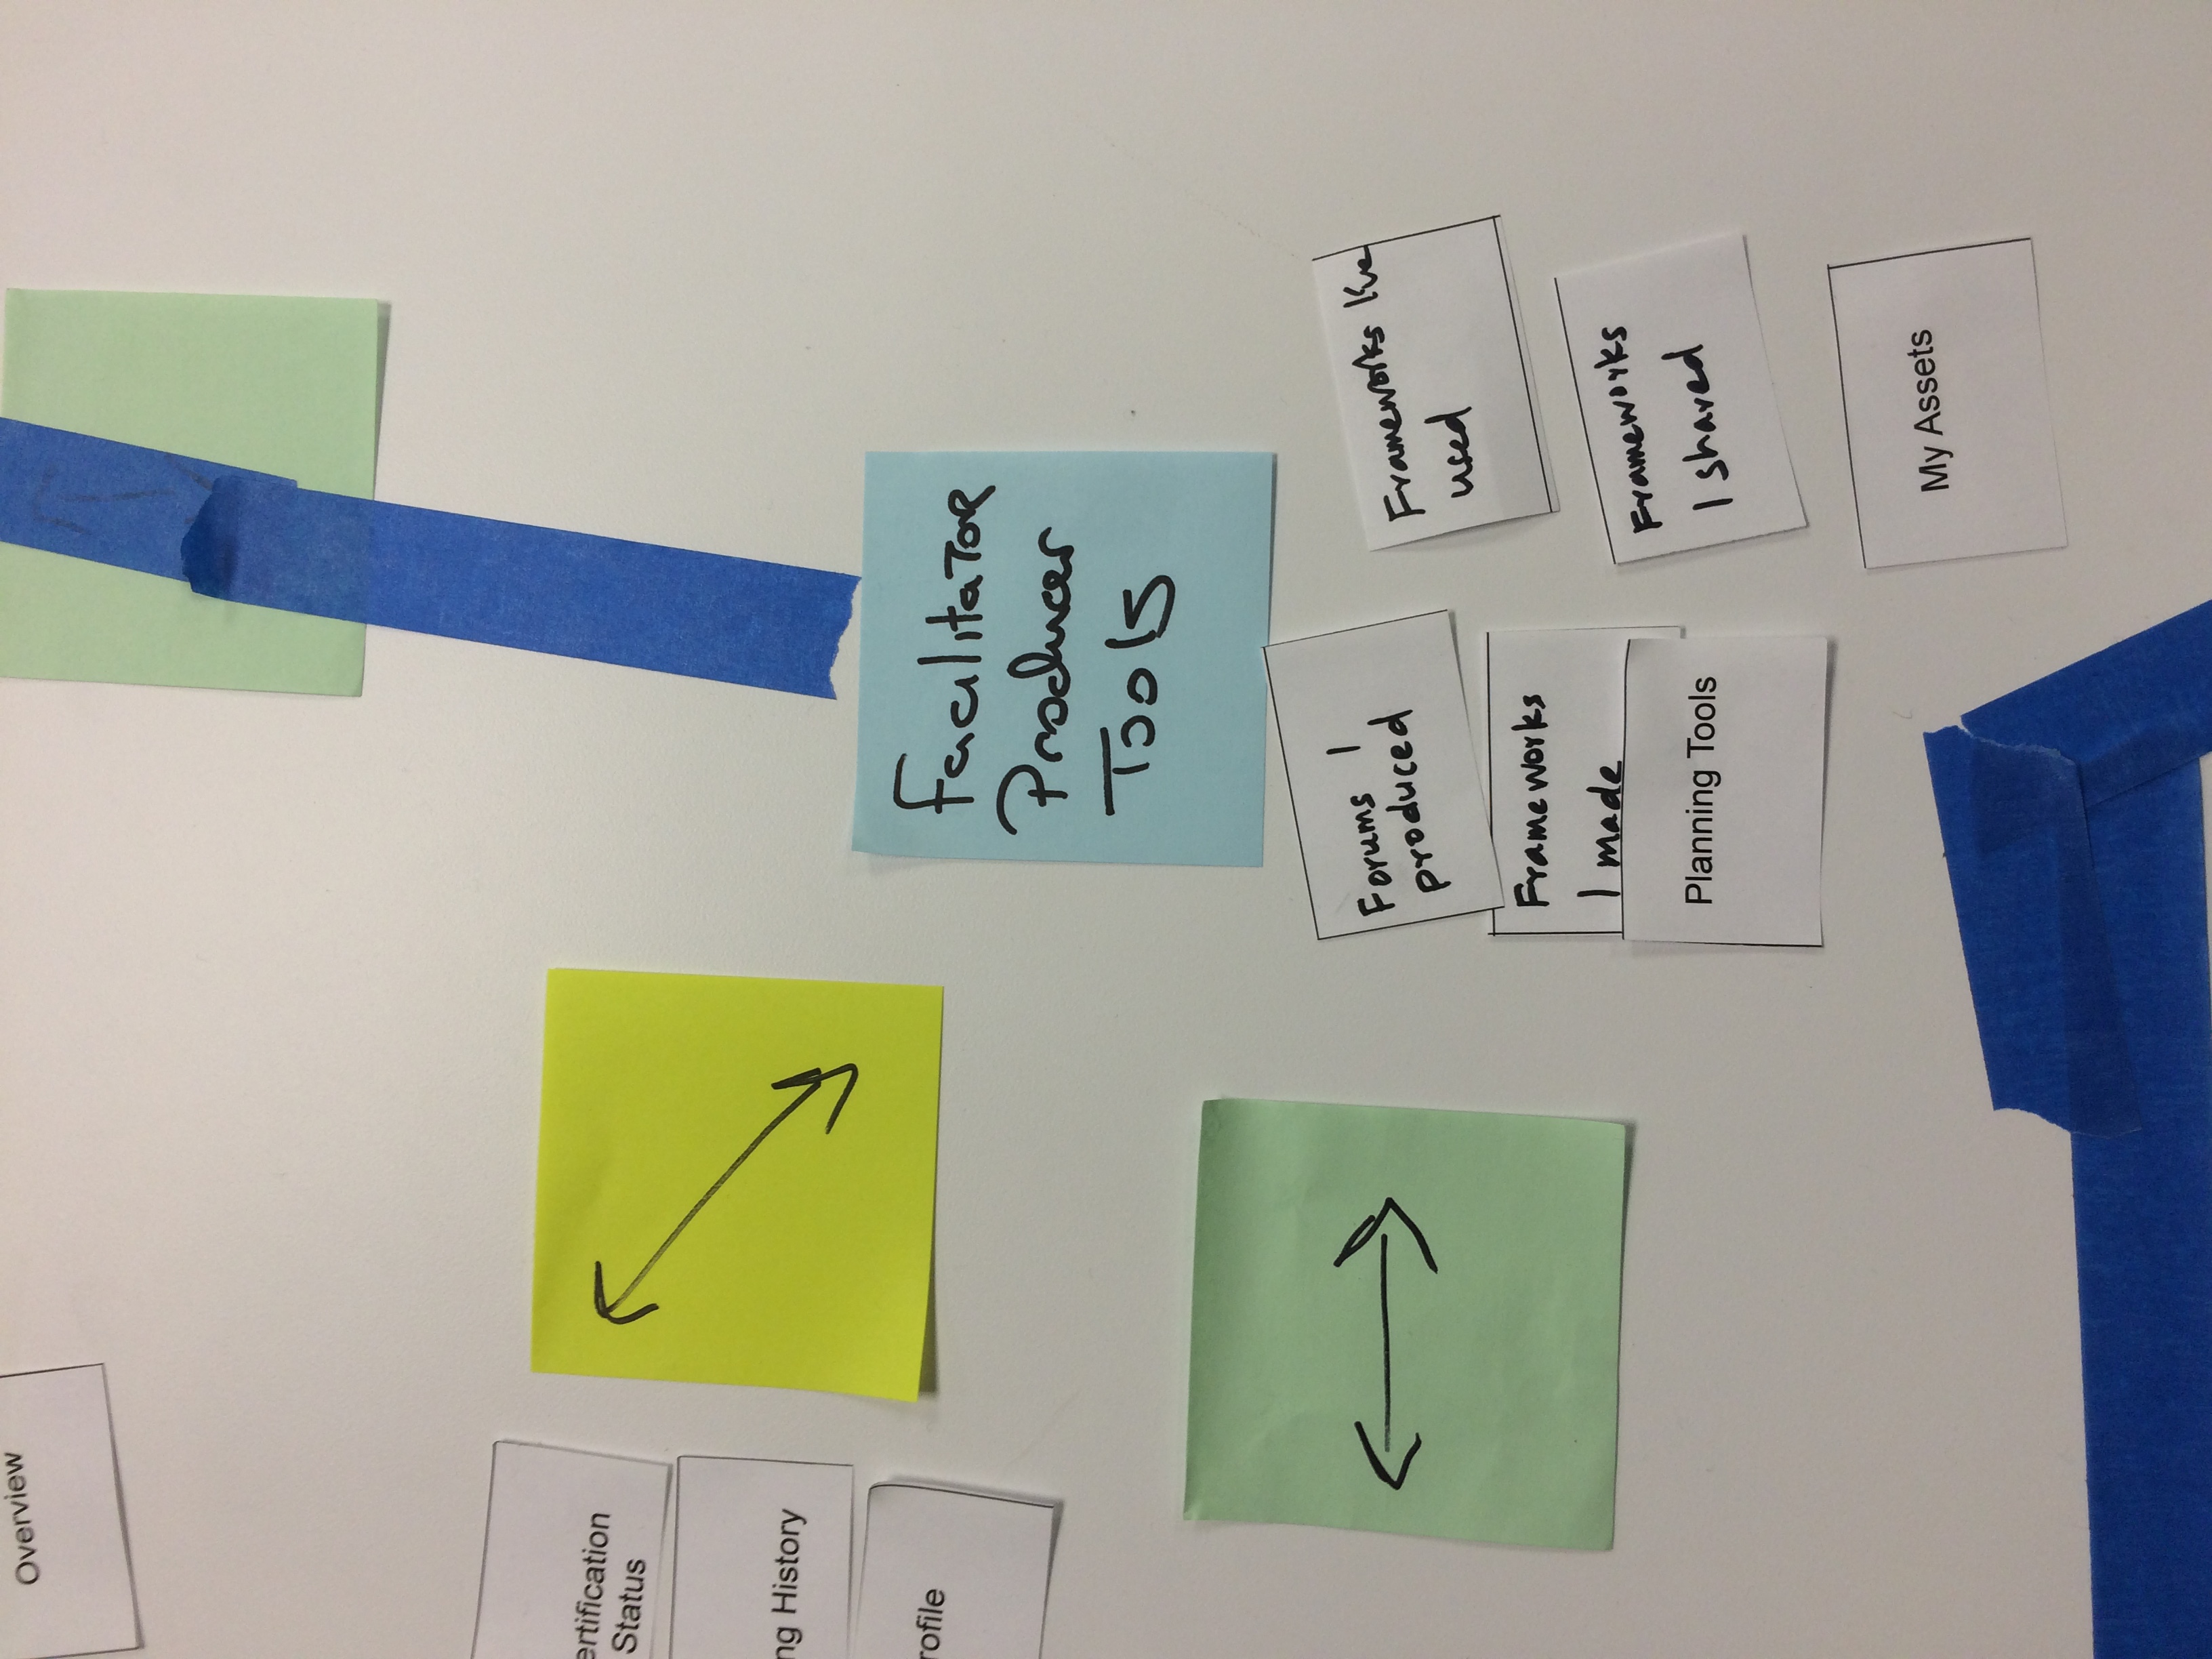 Overview
ertification
Status
ng History
rofile
Facilitator
Producer
Tools
Forums I
produced
Frameworks
I made
Planning Tools
Frameworks I've
used
Frameworks
I shared
My Assets